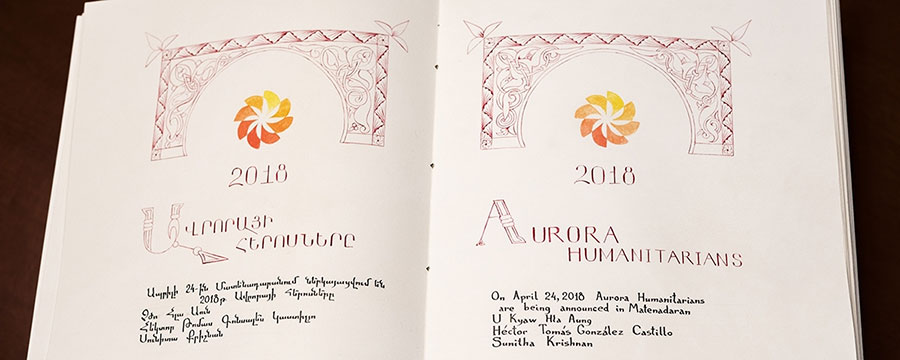 2018
ԱՎՐՈՐԱՅԻ
ՀԵՐՈՍՆԵՐԸ
Ապրիլի 24-ին Մատենադարանում ներկայացվում են
2018թ. Ավրորայի հերոսները
Հլա Աուն
Հեկտոր Թոմաս Գոնսալես Կաստիլյո
Սունիտա Քրիշնան
2018
AURORA
HUMANITARIANS
On April 24, 2018 Aurora Humanitarians
are being announced in Matenadaran
U Kyaw Hla Aung
Héctor Tomás González Castillo
Sunitha Krishnan